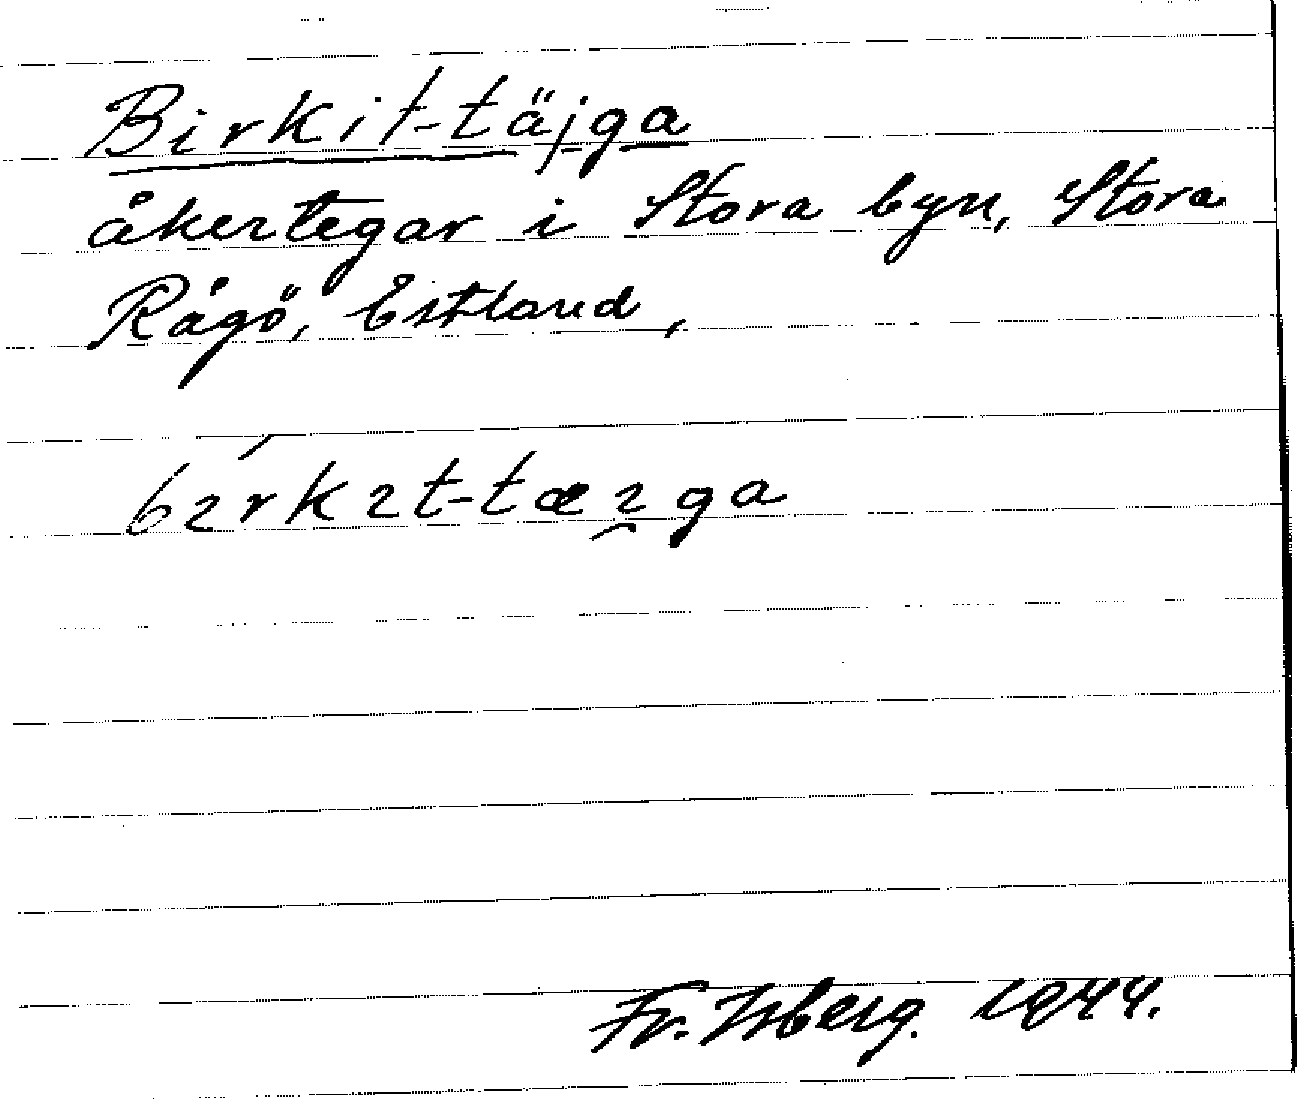 Birkit-täjga
åkertegar i Stora byn, Stora
Rågö, Estland,
bırkıt-tæı̯ga
Fr. Isberg. 1944.